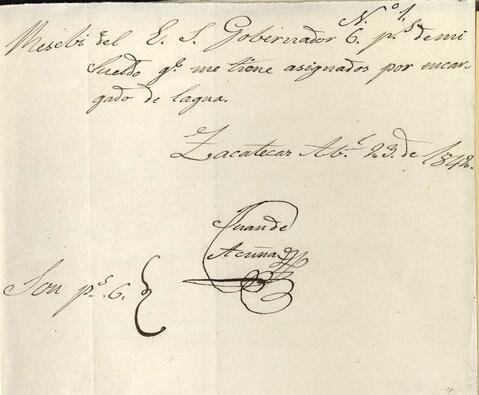 N.º 1.
Resebi del E. S. Gobernador 6. p.s de mi
sueldo q.e me tiene asignados por encar-
gado de lagua.
Zacatecas Ab.l 23. de 1842.
Juan de
Acuña
Son p.s 6.